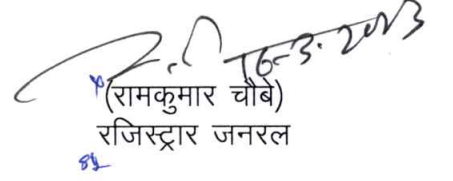 16-3-2023
(रामकुमार चौबे)
रजिस्ट्रार जनरल